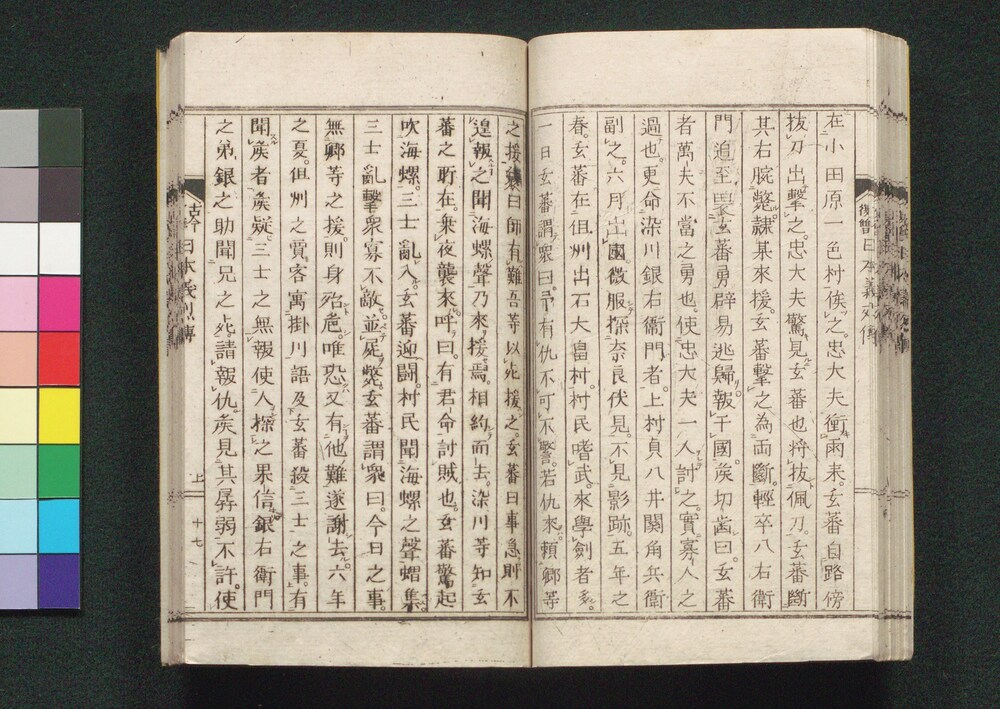 在小田原一色村俟之。忠大夫衝雨来。玄蕃自路傍
抜刀出撃之。忠大夫驚見玄蕃也将抜佩刀。玄蕃斷
其右腕斃。隷某來援。玄蕃撃之為両斷。輕卒八右衛
門追至。玄蕃勇辟易逃歸報于國。矦切歯曰。玄蕃
者萬夫不當之勇也。使忠大夫一人討之。實寡人之
過也。更命染川銀右衞門者。上村貞八井関角兵衞
副之。六月出國微服探奈良伏見。不見影跡。五年之
春。玄蕃在但州出石大畠村。村民嗜武。來學劍者多。
一日玄蕃謂衆曰。予有仇不可不警。若仇來。頼郷等
之援。衆曰師有難吾等以死援之玄蕃曰事急則不
遑報之聞海螺聲乃來援焉。相約而去。染川等知玄
蕃之所在。乗夜襲来。呼曰。有君命討賊也。玄蕃驚起
吹海螺。三士亂入。玄蕃迎闘。村民聞海螺之聲蝟集。
三士亂撃衆寡不敵。並屍斃。玄蕃謂衆曰。今日之事。
無郷等之援。則身殆危。唯恐又有他難遂謝去。六年
之夏。但州之賈客寓掛川語及玄蕃殺三士之事。有
聞矦者矦疑。三士之無報使人探之果信。銀右衛門
之弟銀之助聞兄之死。請報仇矦見其孱弱不許。使
復讐日本義列傳
上 十七